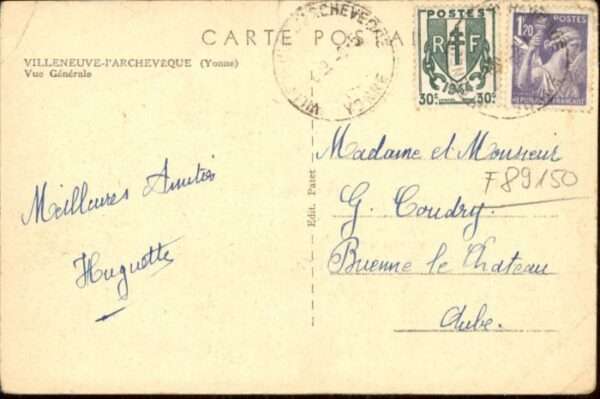 CARTE POSTAL
VILLENEUVE-l'ARCHEVÊQUE (Yonne)
Vue Générale
ARCHEVEQUE
YONNE
POSTES
RF
1944
30c 30c
1F20 POSTES
REPUBLIQUE FRANÇAISE
Meilleures Amitiés
Huguette
Edit. Patet
Madame et Monsieur
F89150
G. Coudry.
Brienne le Chateau
Aube.